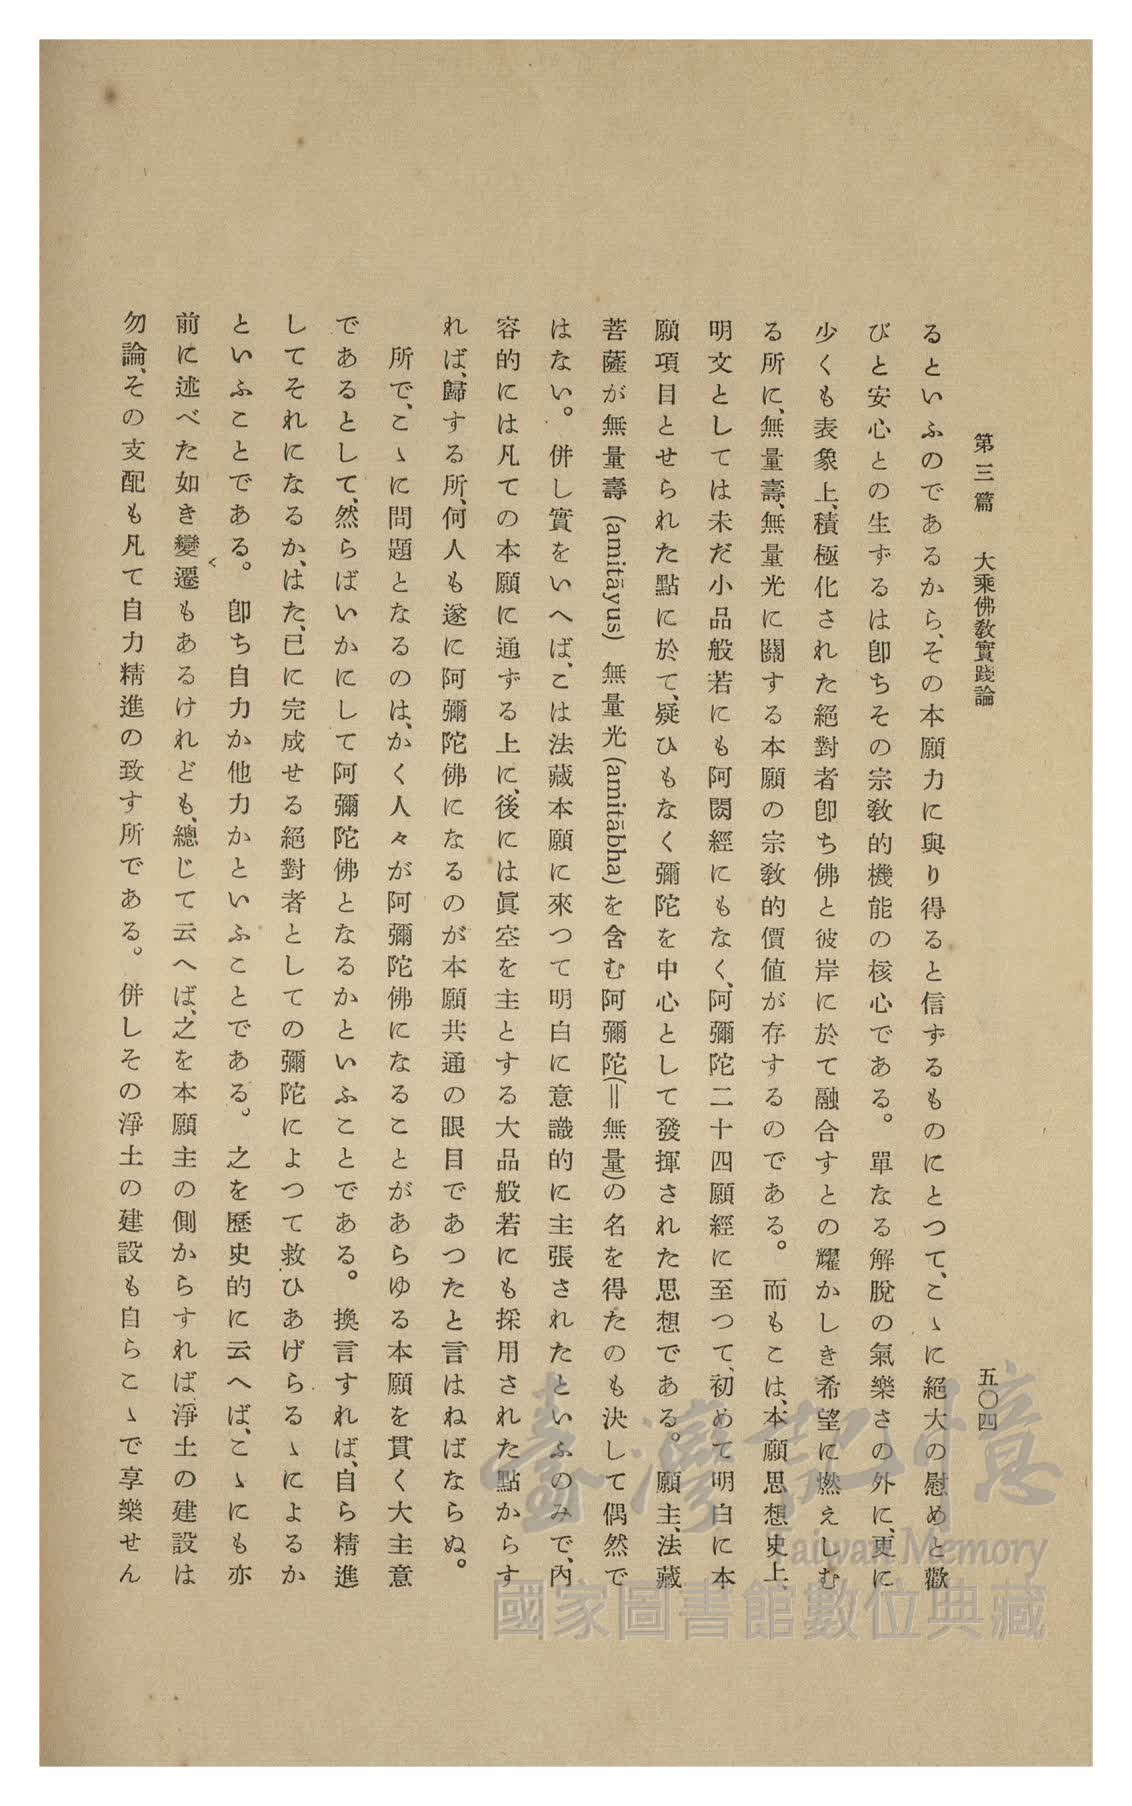 第三篇　大乘佛敎實踐論　五〇四
るといふのであるから、その本願力に與り得ると信ずるものにとつて、こゝに絕大の慰めと歡
びと安心との生ずるは卽ちその宗敎的機能の核心である。單なる解脫の氣樂さの外に、更に
少くも表象上、積極化された絕對者卽ち佛と彼岸に於て融合すとの耀かしき希望に燃えしむ
る所に、無量壽、無量光に關する本願の宗敎的價値が存するのである。而もこは、本願思想史上、
明文としては未だ小品般若にも阿閦經にもなく、阿彌陀二十四願經に至つて、初めて明白に本
願項目とせられた點に於て、疑ひもなく彌陀を中心として發揮された思想である。願主、法藏
菩薩が無量壽 (amitāyus) 無量光 (amitābha) を含む阿彌陀(＝無量)の名を得たのも決して偶然で
はない。併し實をいへば、こは法藏本願に來つて明白に意識的に主張されたといふのみで、內
容的には凡ての本願に通ずる上に、後には眞空を主とする大品般若にも採用された點からす
れば、歸する所、何人も遂に阿彌陀佛になるのが本願共通の眼目であつたと言はねばならぬ。
所で、こゝに問題となるのは、かく人々が阿彌陀佛になることがあらゆる本願を貫く大主意
であるとして、然らばいかにして阿彌陀佛となるかといふことである。換言すれば、自ら精進
してそれになるか、はた、已に完成せる絕對者としての彌陀によつて救ひあげらるゝによるか
といふことである。卽ち自力か他力かといふことである。之を歷史的に云へば、こゝにも亦
前に述べた如き變遷もあるけれども、總じて云へば、之を本願主の側からすれば、淨土の建設は
勿論、その支配も凡て自力精進の致す所である。併しその淨土の建設も自らこゝで享樂せん
臺灣記憶
Taiwan Memory
國家圖書館數位典藏